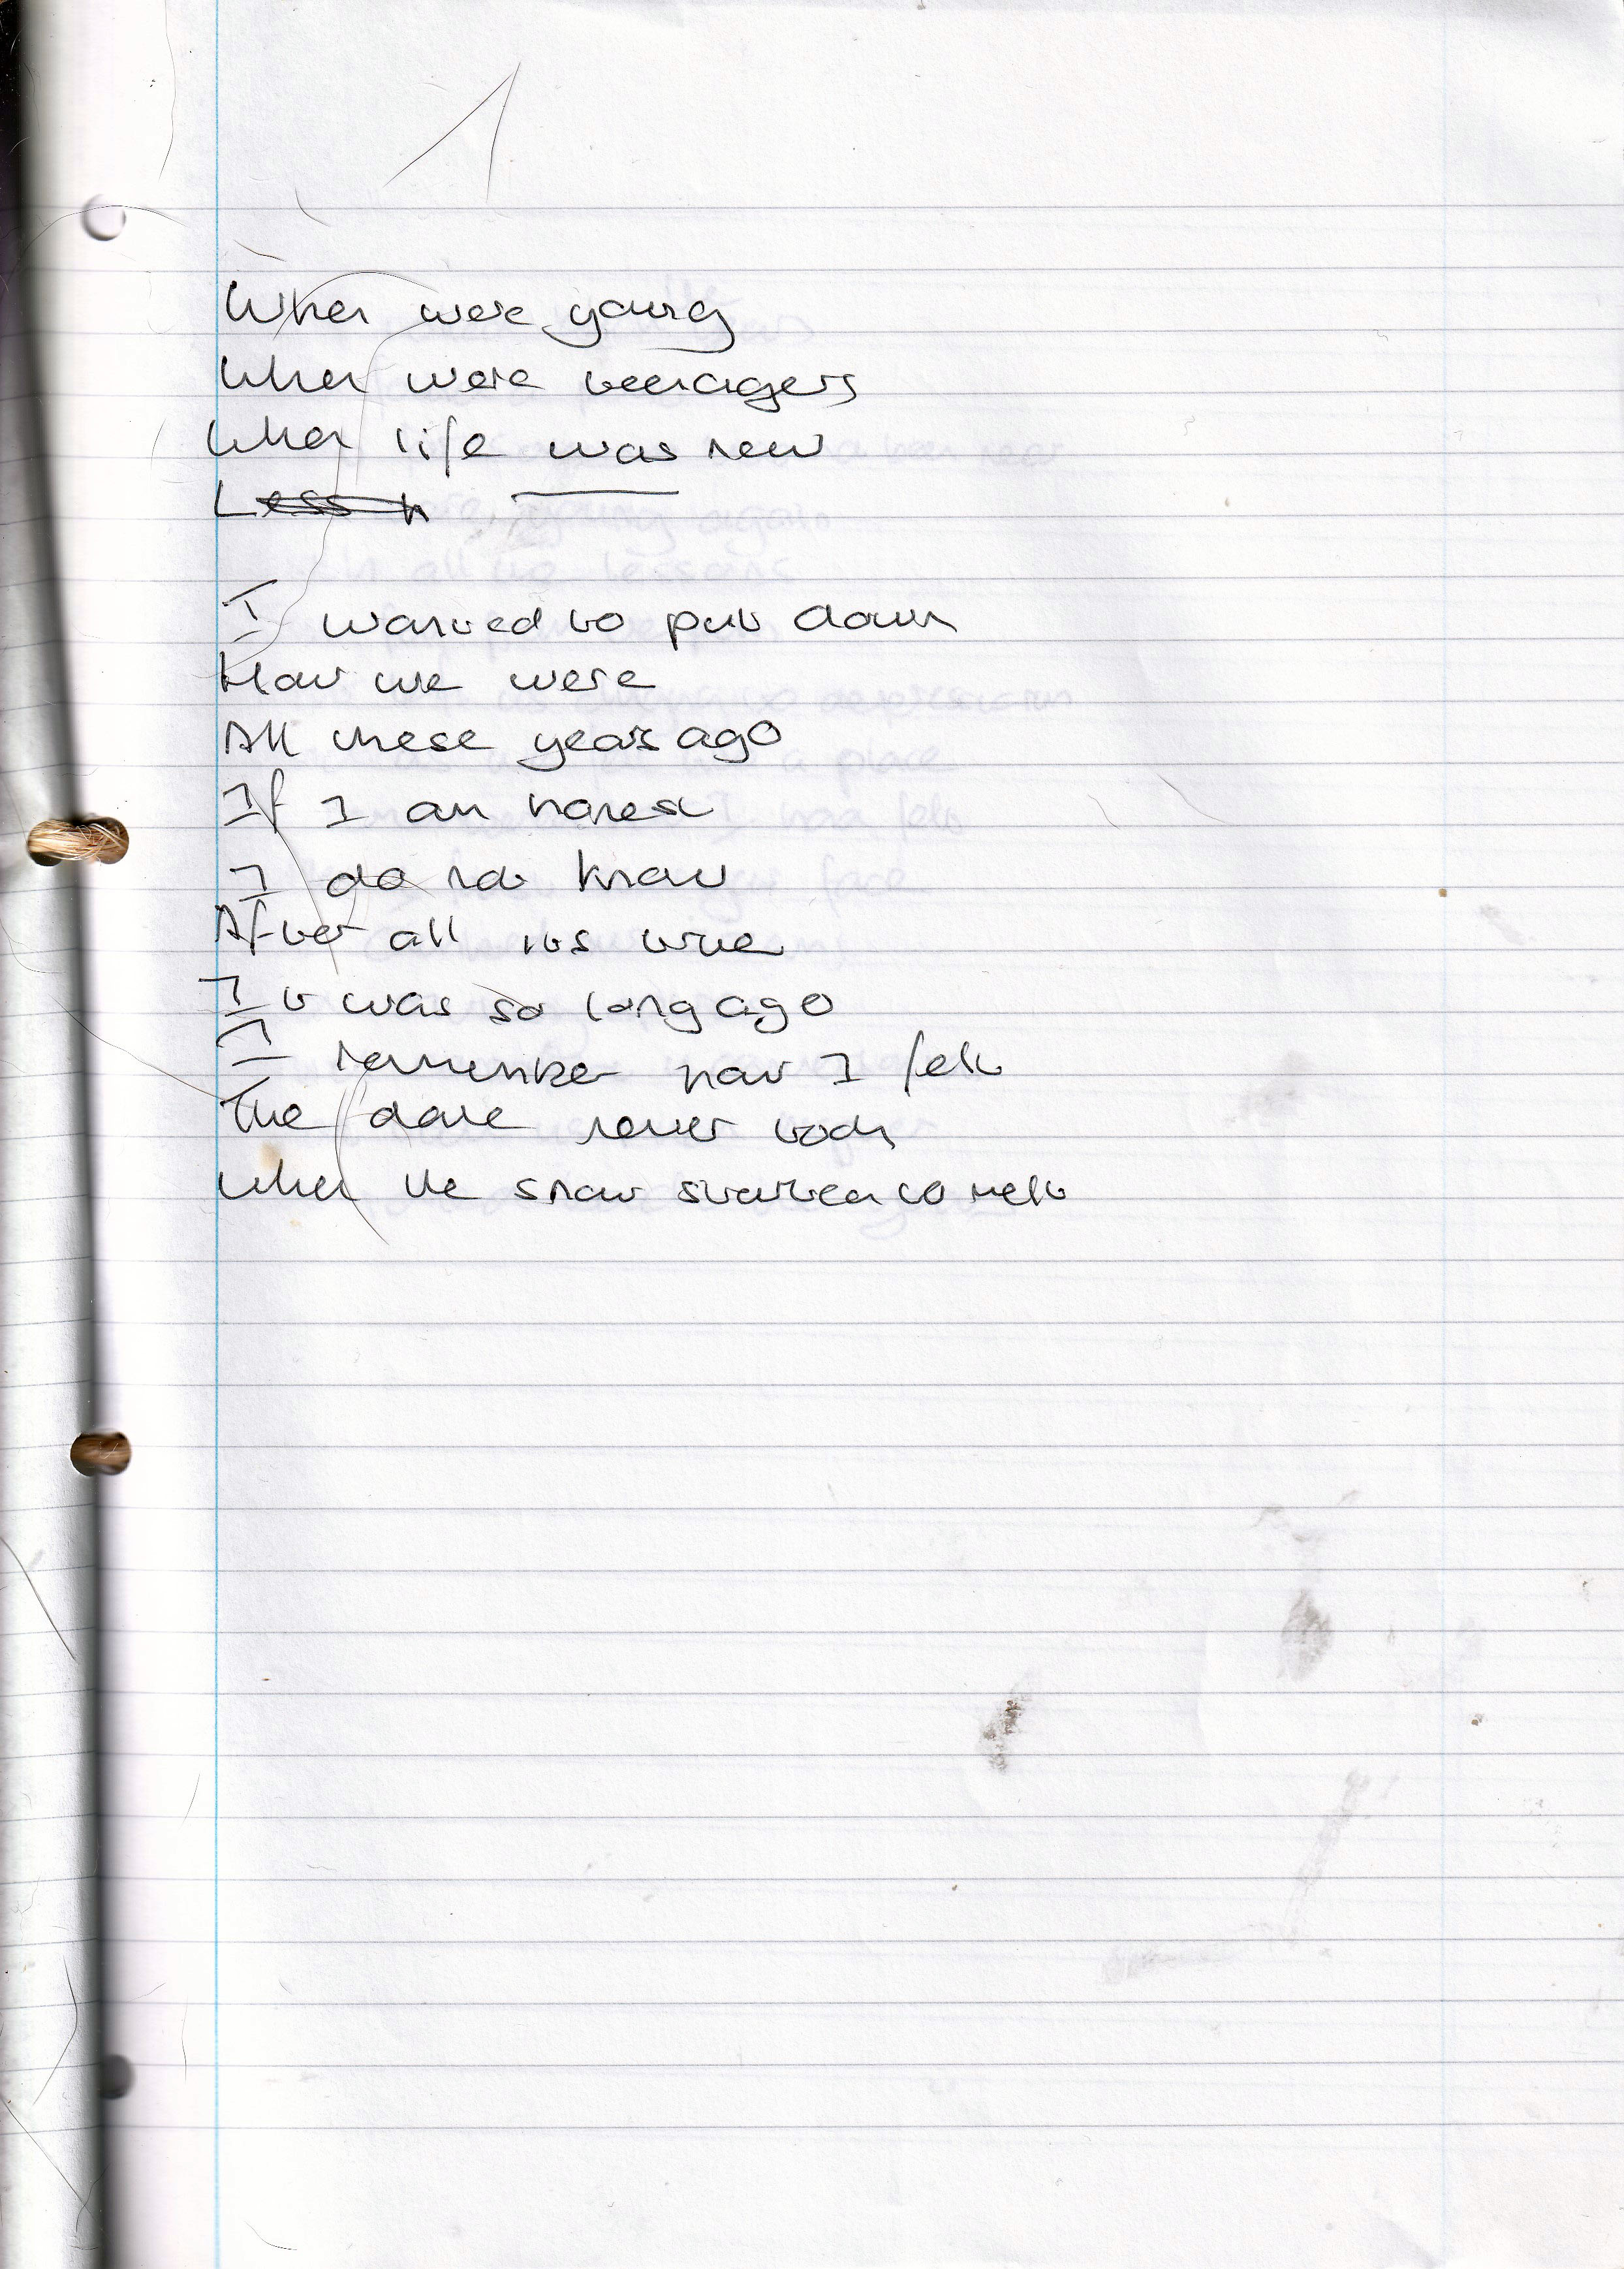 When were young
When were teenagers
When life was new
I wanted to put down
How we were
All these years ago
If I am honest
I do not know
After all its true
It was so long ago
I remember how I felt
The date never took
When the snow started to melt